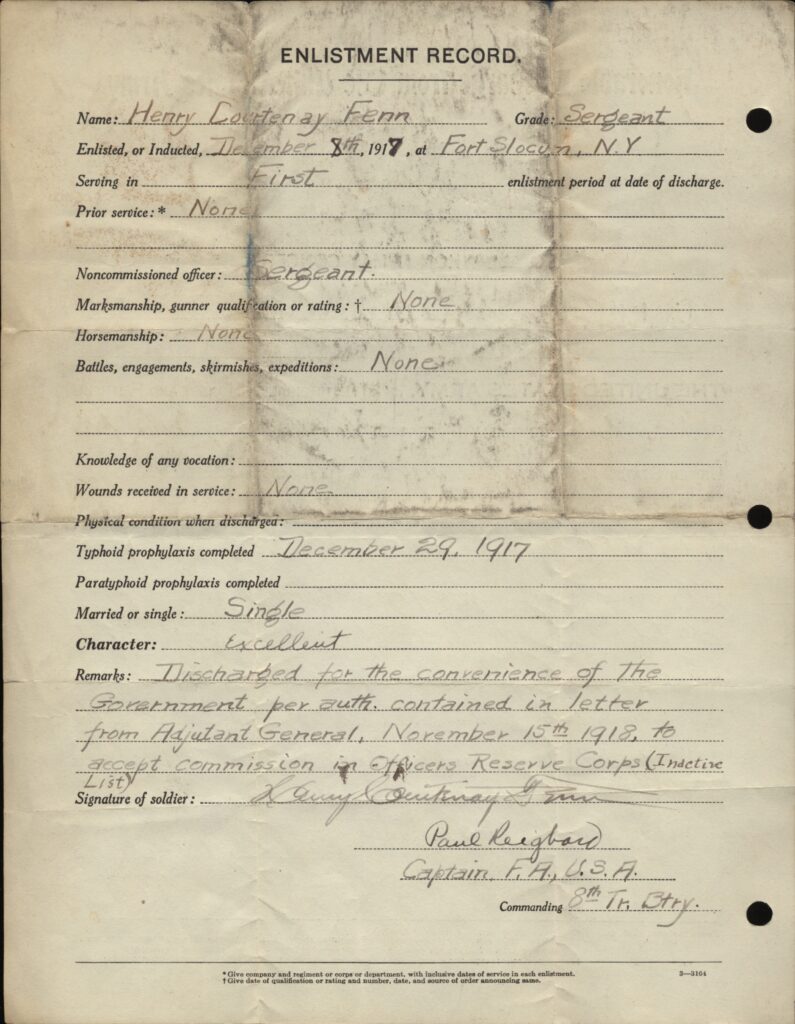 ENLISTMENT RECORD.
Name: Henry Courtenay Fenn Grade: Sergeant
Enlisted, or Inducted, December 8th, 1917, at Fort Slocum, N.Y
Serving in First enlistment period at date of discharge.
Prior service:* None
Noncommissioned officer: Sergeant.
Marksmanship, gunner qualification or rating: † None
Horsemanship: None
Battles, engagements, skirmishes, expeditions: None
Knowledge of any vocation:
Wounds received in service: None
Physical condition when discharged:
Typhoid prophylaxis completed December 29, 1917
Paratyphoid prophylaxis completed
Married or single: Single
Character: Excellent
Remarks: Discharged for the convenience of The
Government per auth. contained in letter
from Adjutant General, November 15th 1918, to
accept commission in Officers Reserve Corps (Inactive
List)
Signature of soldier: Henry Courtenay Fenn
Paul
Captain, F.A., U.S.A.
Commanding 8th Tr. Btry.
* Give company and regiment or corps or department, with inclusive dates of service in each enlistment.
† Give date of qualification or rating and number, date, and source of order announcing same.
3—3164